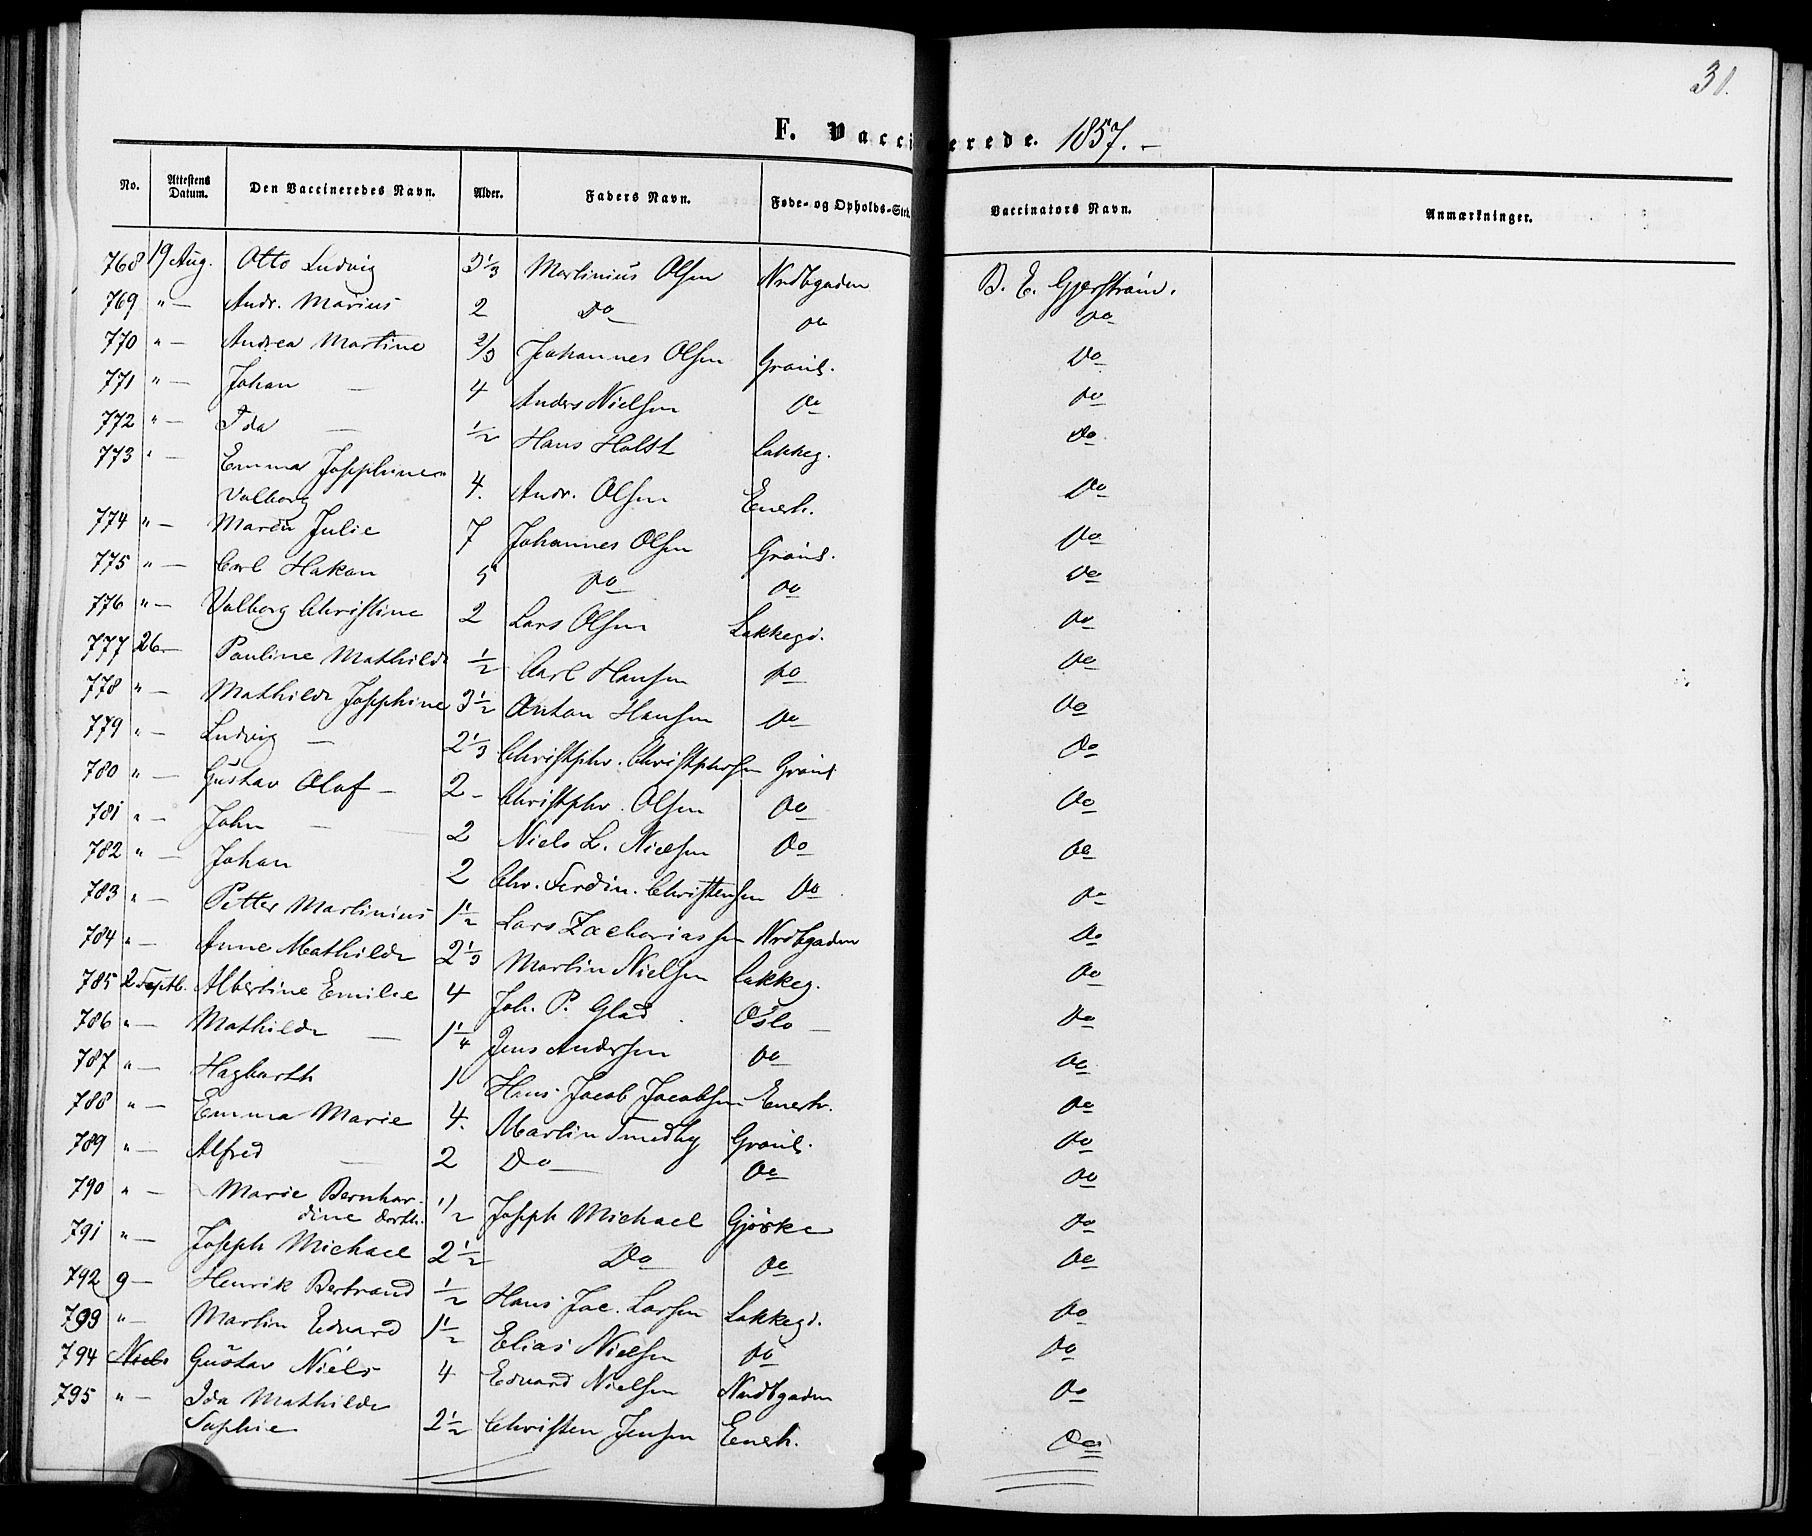 31.
F. Vaccinerede. 1857. –
No. Attestens Datum. Den Vaccineredes Navn. Alder. Faders Navn. Føde- og Opholds-Sted. Vaccinators Navn. Anmærkninger.
768 19 Aug. Otto Ludvig 3 1/3 Martinius Olsen Nrdbgaden B. E. Gjerström.
769 " — Andr. Marius 2 Do Do Do
770 " — Andrea Martine 2/3 Johannes Olsen Grönl. Do
771 " — Johan — 4 Anders Nielsen Do Do
772 " — Ida — 1/2 Hans Holst Lakkeg. Do
773 " — Emma Josephine Valborg 4. Andr. Olsen Enerh. Do
774 " — Maren Julie 7 Johannes Olsen Grönl. Do
775 " — Carl Hakon 5 Do Do Do
776 " — Valborg Christine 2 Lars Olsen Lakkegd. Do
777 26 — Pauline Mathilde 1/2 Carl Hansen Do Do
778 " — Mathilde Josephine 3 1/2 Anton Hansen Do Do
779 " — Ludvig — 2 1/3 Christphr. Christphersen Grönl Do
780 " — Gustav Olaf — 2 – Christphr. Olsen Do Do
781 " — John — 2 Niels L. Nielsen Do Do
782 " — Johan 2 Chr. Ferdin. Christensen Do Do
783 " — Petter Martinius 1 1/2 Lars Zachariassen Nrdbgaden Do
784 " — Anne Mathilde 2 1/3 Martin Nielsen Lakkeg. Do
785 2 Septb. Albertine Emilie 4 Joh. P. Glad Oslo — Do
786 " — Mathilde — 1 1/4 Jens Andersen Do Do
787 " — Hagbarth 1 Hans Jacob Jacobsen Enerh. Do
788 " — Emma Marie 4. Martin Smedby Grönl. Do
789 " — Alfred — 2 Do Do Do
790 " — Marie Bernhardine Dorth. 1/2 Joseph Michael Gjörke Do
791 " — Joseph Michael 2 1/2 Do Do Do
792 9 — Henrik Bertrand 1/2 Hans Jac. Larsen Lakkegd. Do
793 " — Martin Edvard 1 1/2 Elias Nielsen Do Do
794 Niels Gustav Niels 4 Edvard Nielsen Nordbgaden Do
795 " — Ida Mathilde Sophie 2 1/2 Christen Jensen Enerh. Do